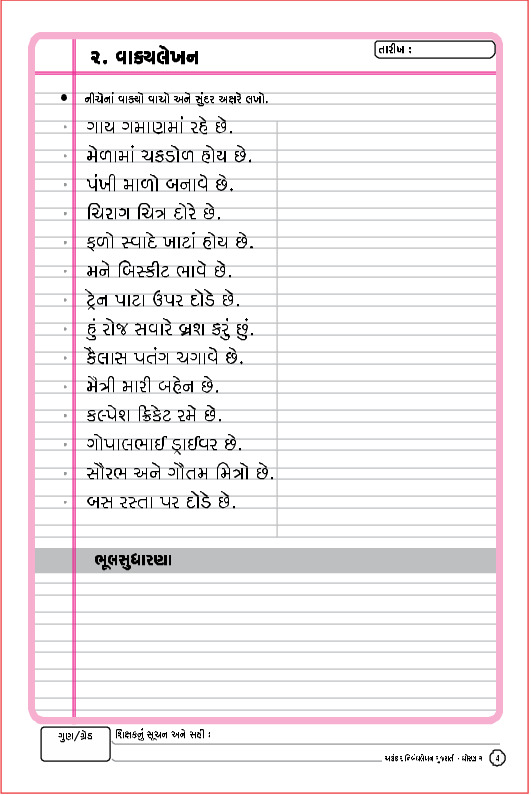 ૨. વાક્યલેખન
તારીખ :
• નીચેનાં વાક્યો વાચો અને સુંદર અક્ષરે લખો.
ગાય ગમાણમાં રહે છે.
મેળામાં ચકડોળ હોય છે.
પંખી માળો બનાવે છે.
ચિરાગ ચિત્ર દોરે છે.
ફળો સ્વાદે ખાટાં હોય છે.
મને બિસ્કીટ ભાવે છે.
ટ્રેન પાટા ઉપર દોડે છે.
હું રોજ સવારે બ્રશ કરું છું.
કૈલાસ પતંગ ચગાવે છે.
મૈત્રી મારી બહેન છે.
કલ્પેશ ક્રિકેટ રમે છે.
ગોપાલભાઈ ડ્રાઈવર છે.
સૌરભ અને ગૌતમ મિત્રો છે.
બસ રસ્તા પર દોડે છે.
ભૂલસુધારણા
ગુણ/ગ્રેડ
શિક્ષકનું સૂચન અને સહી :
ગુજરાતી - ધોરણ ૨ 4